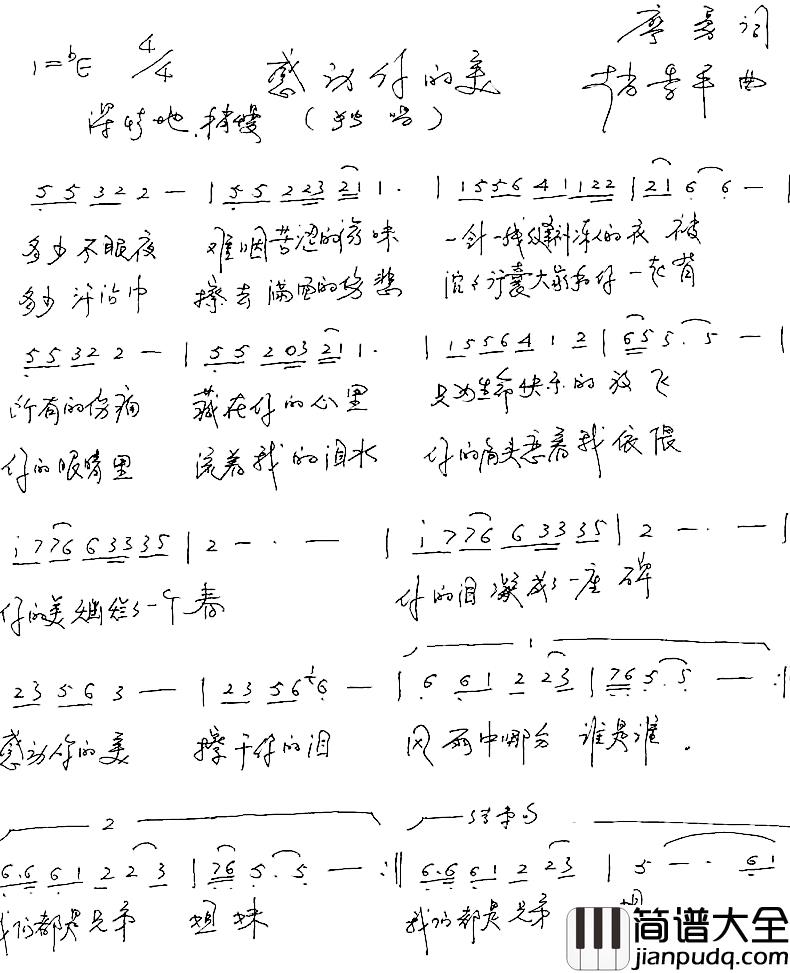 1=bE 4/4 感动你的美 廖勇词
深情地.稍慢 (独唱) 曲
5 5 3 2 2 — | 5 5 2 2 3 2 1 1 . | 1 5 5 6 4 1 1 2 2 | 2 1 6 6 — |
多少不眠夜 难咽苦涩的滋味 一针一线缝补 的衣被
多少汗沾巾 擦去满面的伤悲 沉沉行囊大家和你一起背
5 5 3 2 2 — | 5 5 2 0 3 2 1 1 . | 1 5 5 6 4 1 2 | 6 5 5 . 5 — |
所有的伤痛 藏在你的心里 只为生命快乐的放飞
你的眼睛里 流着我的泪水 你的肩头恋着我依偎
i 7 7 6 6 3 3 3 5 | 2 — . — | i 7 7 6 6 3 3 3 5 | 2 — . — |
你的美灿烂了一个春 你的泪凝成了一座碑
1
2 3 5 6 3 — | 2 3 5 6 i 6 — | 6 6 1 2 2 3 | 7 6 5 . 5 — :||
感动你的美 擦干你的泪 风雨中哪分谁是谁.
2 结束句
6.6 6 1 2 2 3 | 7 6 5 . 5 — :|| 6.6 6 1 2 2 3 | 5 — . 6 1
我们都是兄弟姐妹 我们都是兄弟姐
简谱大全
jianpudq.com